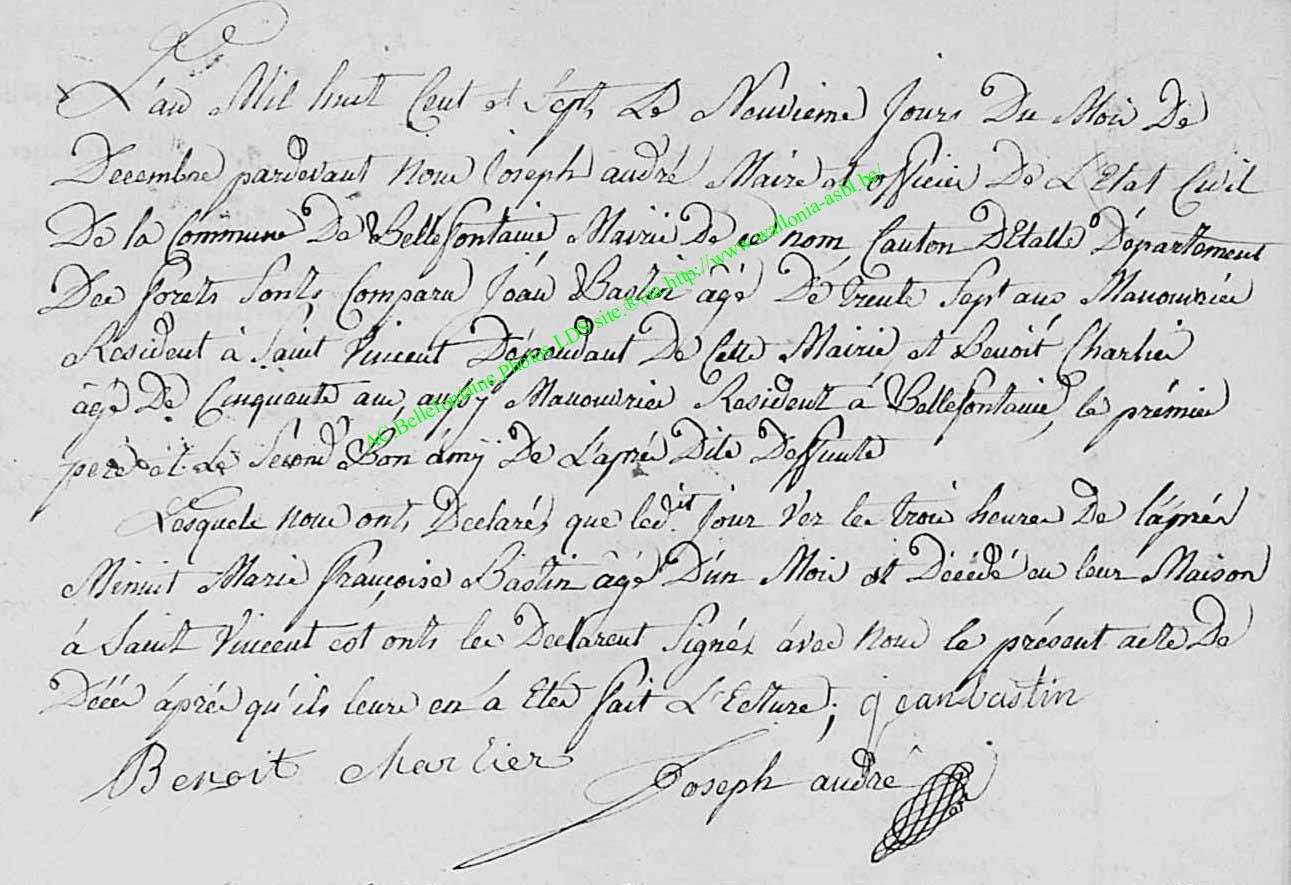 L'an Mil huit Cent et Sept Le Neuvieme Jours Du Mois De
Decembre pardevant Nous Joseph andré Maire et officier De L'Etat Civil
De la Commune De Bellefontaine Mairie De ce nom, Canton D'Etalle Département
Des forets Sonts Comparu Jean Bastin âgé De trente Sept ans Manouvrier
Resident à Saint Vincent Dépendant De Cette Mairie et Benoit Charlier
âgé De Cinquante ans aussy Manouvrier Resident à Bellefontaine, le prémier
pere et Le Second Bon amij De L'aprés Dite Deffunte
Lesquels nous onts Declarés que ledit Jour Ver les trois heures De l'aprés
Minuit Marie françoise Bastin âgé D'un Mois et Décédé en leur Maison
à Saint Vincent et onts les Declarent Signés avec Nous le présent acte De
Décé áprés qu'ils leurs en à Eté fait L'Ecture; jean bastin
Benoit charlier
Joseph andré
AC Bellefontaine Photos LDS site ® via http://www.wallonia-asbl.be/